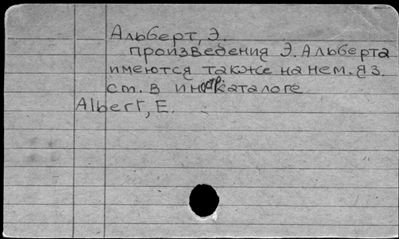 Альберт, Э.
произведения Э. Альберта
имеются также на нем. яз.
см. в ин. каталоге
Albert, E.